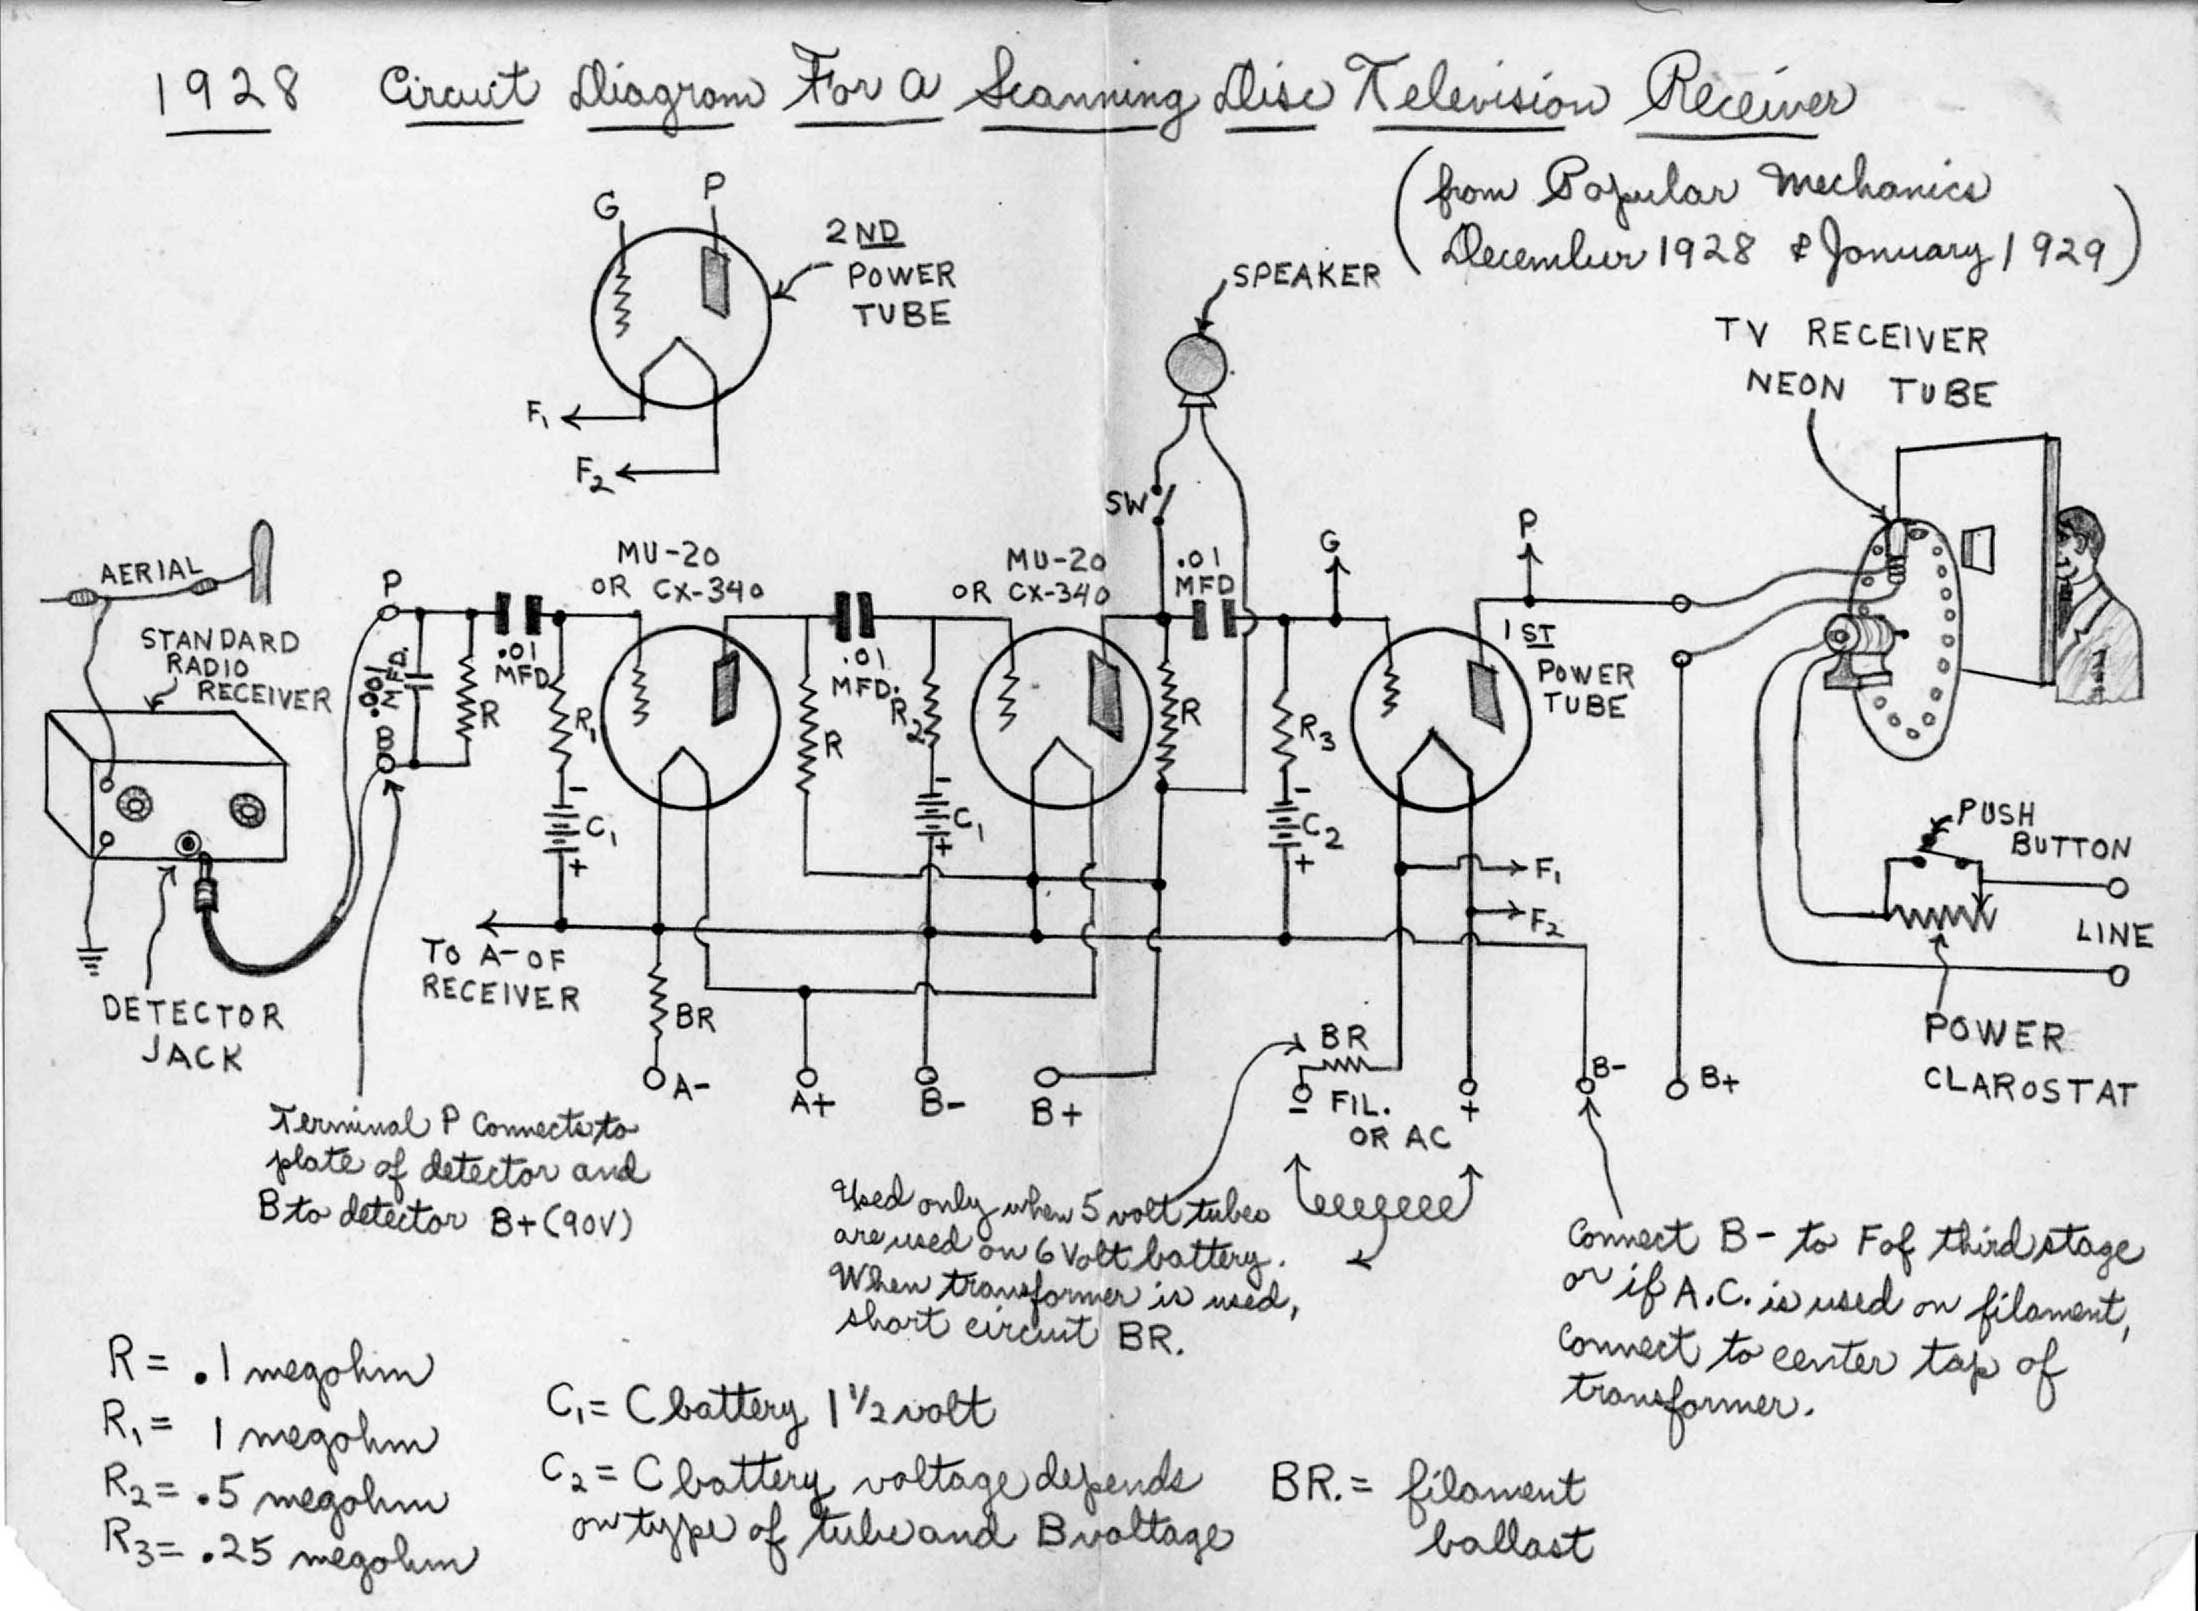 1928 Circuit Diagram For a Scanning Disc Television Receiver
(from Popular Mechanics
December 1928 & January 1929)
G
P
2ND
POWER
TUBE
F1
F2
SPEAKER
TV RECEIVER
NEON TUBE
SW
AERIAL
STANDARD
RADIO
RECEIVER
DETECTOR
JACK
P
.001
MFD.
B
R
.01
MFD
R1
C1
-
+
MU-20
OR CX-340
R
.01
MFD.
R2
-
C1
+
MU-20
OR CX-340
.01
MFD
R
G
R3
-
C2
+
P
1ST
POWER
TUBE
F1
F2
PUSH
BUTTON
LINE
POWER
CLAROSTAT
TO A- OF
RECEIVER
BR
A-
A+
B-
B+
BR
-
FIL.
OR AC
+
B-
B+
Terminal P Connects to
plate of detector and
B to detector B+ (90V)
Used only when 5 volt tubes
are used on 6 Volt battery.
When transformer is used,
short circuit BR.
Connect B- to F of third stage
or if A.C. is used on filament,
connect to center tap of
transformer.
R = .1 megohm
R1 = 1 megohm
R2 = .5 megohm
R3 = .25 megohm
C1 = C battery 1 1/2 volt
C2 = C battery voltage depends
on type of tube and B voltage
BR. = filament
ballast